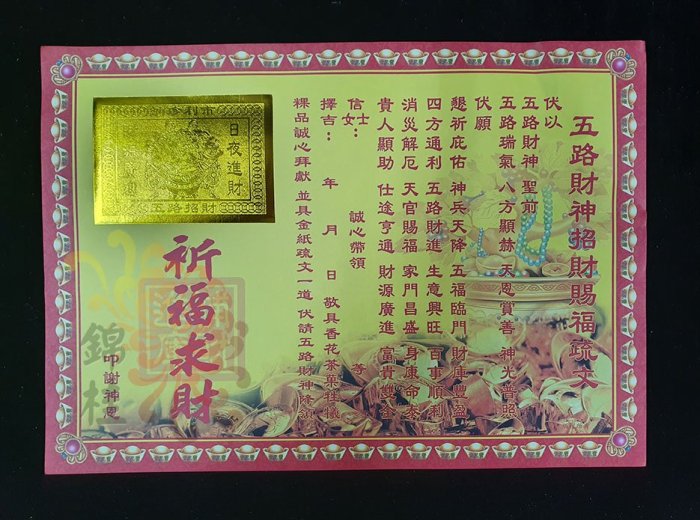 五路財神招財賜福疏文
伏以
五路財神 聖前
五路瑞氣 八方顯赫 天恩賞善 神光普照
伏願
懇祈庇佑 神兵天降 五福臨門 財庫豐盈
四方通利 五路財進 生意興旺 百事順利
消災解厄 天官賜福 家門昌盛 身康命泰
貴人顯助 仕途亨通 財源廣進 富貴雙全
信士女： 誠心帶領 等
擇吉： 年 月 日 敬具香花茶菓
粿品誠心拜獻 並具金紙疏文一道 伏請五路財神
日夜進財
五路招財
祈福求財
叩謝神恩
錦桂